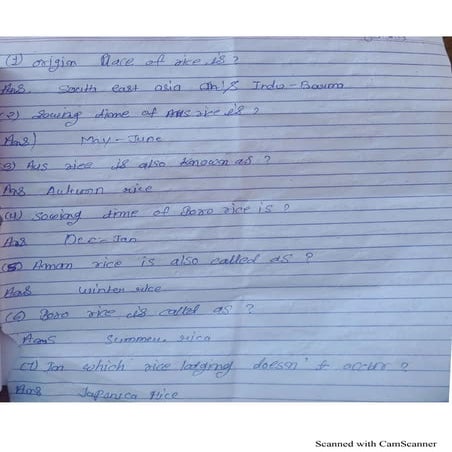 (1) origin Place of rice is ?
Ans. South east asia Indo-Burma
(2) Sowing time of Aus rice is ?
Ans) May - June
(3) Aus rice is also known as ?
Ans Autumn rice
(4) Sowing time of Boro rice is ?
Ans Dec - Jan
(5) Aman rice is also called as ?
Ans winter rice
(6) Boro rice is called as ?
Ans Summer rice
(7) In which rice lodging doesn't occur ?
Ans Japanica Rice
Scanned with CamScanner